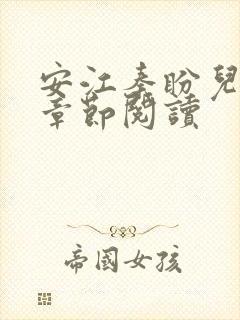 安江秦盼兒
章節閱讀
帝國女孩